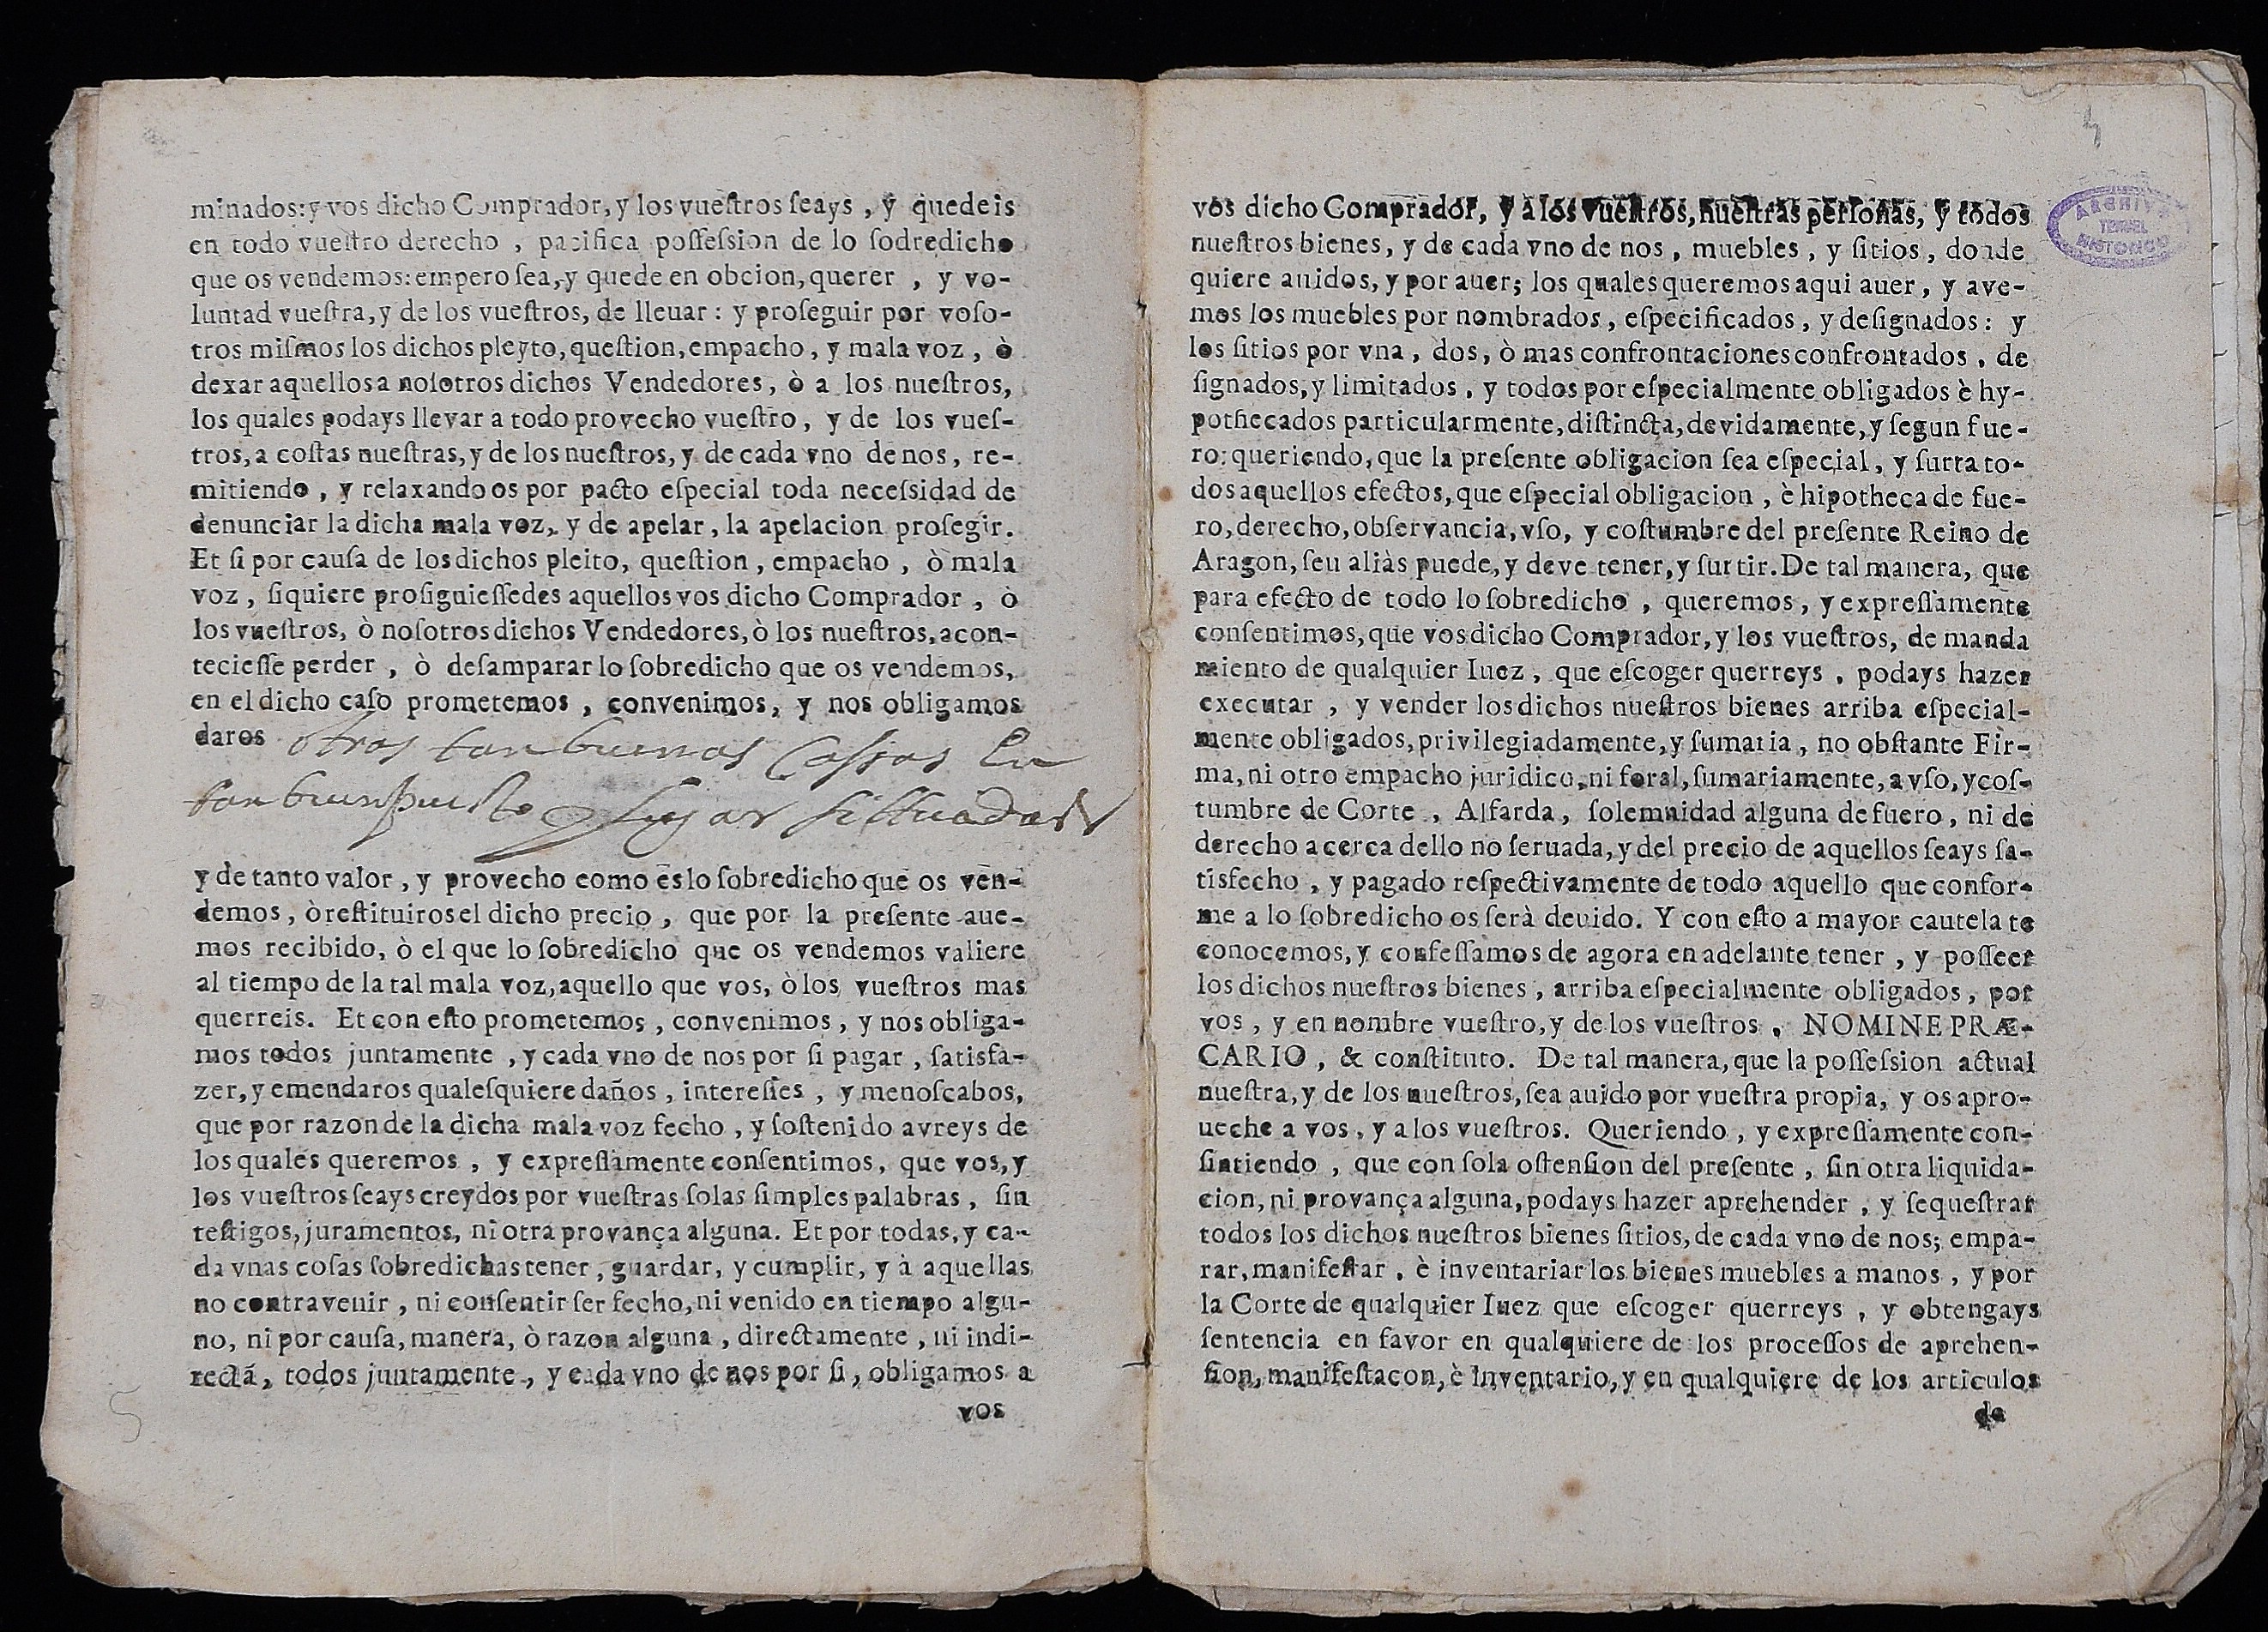 minados: y vos dicho Comprador, y los vuestros seays, y quedeis
en todo vuestro derecho, pacifica possession de lo sodredicho
que os vendemos: empero sea, y quede en obcion, querer, y vo-
luntad vuestra, y de los vuestros, de lleuar: y proseguir por voso-
tros mismos los dichos pleyto, question, empacho, y mala voz, ò
dexar aquellos a nosotros dichos Vendedores, ò a los nuestros,
los quales podays llevar a todo provecho vuestro, y de los vues-
tros, a costas nuestras, y de los nuestros, y de cada vno de nos, re-
mitiendo, y relaxandoos por pacto especial toda necessidad de
denunciar la dicha mala voz, y de apelar, la apelacion prosegir.
Et si por causa de los dichos pleito, question, empacho, ò mala
voz, siquiere prosiguiessedes aquellos vos dicho Comprador, ò
los vuestros, ò nosotros dichos Vendedores, ò los nuestros, acon-
teciesse perder, ò desamparar lo sobredicho que os vendemos,
en el dicho caso prometemos, convenimos, y nos obligamos
daros otras tan buenas Cassas En
tan buen puesto y lugar sittiadas
y de tanto valor, y provecho como es lo sobredicho que os ven-
demos, ò restituiros el dicho precio, que por la presente aue-
mos recibido, ò el que lo sobredicho que os vendemos valiere
al tiempo de la tal mala voz, aquello que vos, ò los vuestros mas
querreis. Et con esto prometemos, convenimos, y nos obliga-
mos todos juntamente, y cada vno de nos por si pagar, satisfa-
zer, y emendaros qualesquiere daños, interesses, y menoscabos,
que por razon de la dicha mala voz fecho, y sostenido avreys de
los quales queremos, y expressamente consentimos, que vos, y
los vuestros seays creydos por vuestras solas simples palabras, sin
testigos, juramentos, ni otra provança alguna. Et por todas, y ca-
da vnas cosas sobredichas tener, guardar, y cumplir, y à aquellas
no contravenir, ni consentir ser fecho, ni venido en tiempo algu-
no, ni por causa, manera, ò razon alguna, directamente, ni indi-
rectã, todos juntamente, y cada vno de nos por si, obligamos a
vos
5
vos dicho Comprador, y a los vuestros, nuestras personas, y todos
nuestros bienes, y de cada vno de nos, muebles, y sitios, donde
quiere auidos, y por auer; los quales queremos aqui auer, y ave-
mos los muebles por nombrados, especificados, y designados: y
los sitios por vna, dos, ò mas confrontaciones confrontados, de
signados, y limitados, y todos por especialmente obligados è hy-
pothecados particularmente, distincta, devidamente, y segun fue-
ro: queriendo, que la presente obligacion sea especial, y surta to-
dos aquellos efectos, que especial obligacion, è hipotheca de fue-
ro, derecho, observancia, vso, y costumbre del presente Reino de
Aragon, seu aliàs puede, y deve tener, y surtir. De tal manera, que
para efecto de todo lo sobredicho, queremos, y expressamente
consentimos, que vos dicho Comprador, y los vuestros, de manda
miento de qualquier Iuez, que escoger querreys, podays hazer
executar, y vender los dichos nuestros bienes arriba especial-
mente obligados, privilegiadamente, y sumaria, no obstante Fir-
ma, ni otro empacho juridico, ni foral, sumariamente, a vso, y cos-
tumbre de Corte, Alfarda, solemnidad alguna de fuero, ni de
derecho acerca dello no seruada, y del precio de aquellos seays sa-
tisfecho, y pagado respectivamente de todo aquello que confor-
me a lo sobredicho os serà deuido. Y con esto a mayor cautela te
conocemos, y confessamos de agora en adelante tener, y posseer
los dichos nuestros bienes, arriba especialmente obligados, por
vos, y en nombre vuestro, y de los vuestros, NOMINE PRÆ-
CARIO, & constituto. De tal manera, que la possession actual
nuestra, y de los nuestros, sea auido por vuestra propia, y os apro-
ueche a vos, y a los vuestros. Queriendo, y expressamente con-
sintiendo, que con sola ostension del presente, sin otra liquida-
cion, ni provança alguna, podays hazer aprehender, y sequestrar
todos los dichos nuestros bienes sitios, de cada vno de nos; empa-
rar, manifestar, è inventariar los bienes muebles a manos, y por
la Corte de qualquier Iuez que escoger querreys, y obtengays
sentencia en favor en qualquiere de los processos de aprehen-
sion, manifestacon, è inventario, y en qualquiere de los articulos
de
ARCHIVO
TERUEL
HISTORICO